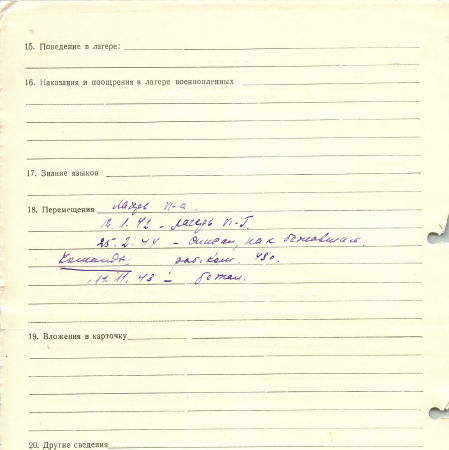 15. Поведение в лагере:
16. Наказания и поощрения в лагере военнопленных
17. Знание языков
18. Перемещения Лагерь VI-а.
12.1.42 - лагерь VI-Г.
25.2.44 - списан, как бежавший.
Команды: раб. ком. 480.
11.11.43 - бежал.
19. Вложения в карточку
20. Другие сведения